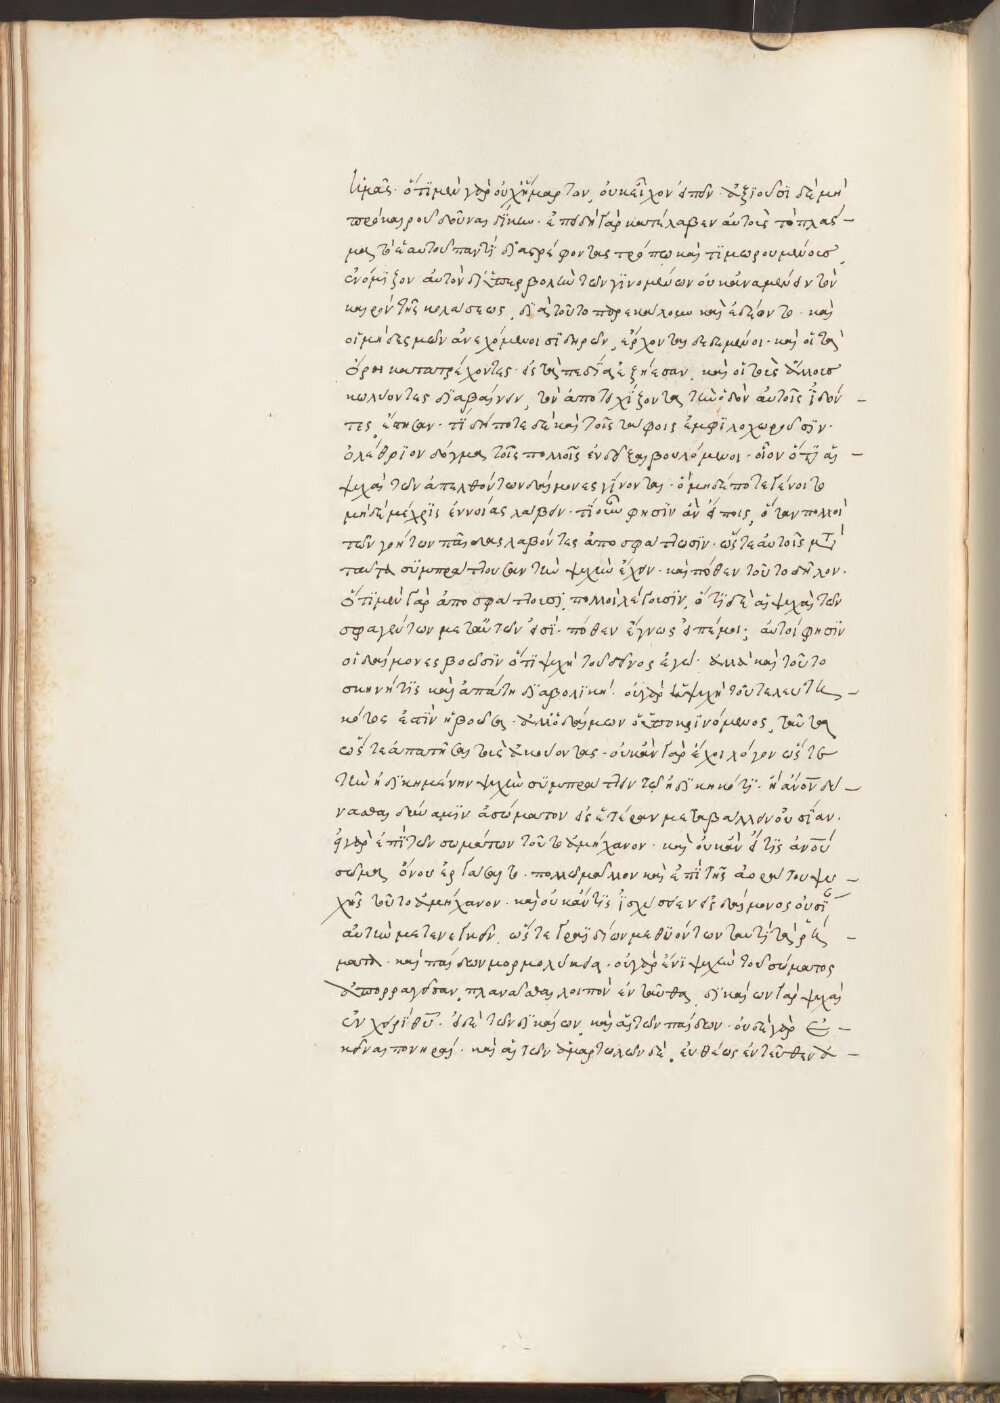 ἡμᾶς· ὅτι μὲν γὰρ οὐχ ἥμαρτον, οὐκ εἶχον εἰπεῖν· ἀξιοῦσι δὲ μὴ
πρὸ καιροῦ δοῦναι δίκην· ἐπειδὴ γὰρ κατέλαβεν αὐτοὺς τὸ πλάσ-
μα τὸ ἑαυτοῦ παντὶ διαστρέφοντας τρόπω καὶ τιμωρουμένους,
ἐνόμιζον αὐτὸν δι' ὑπερβολὴν τῶν γινομένων οὐκ ἀναμένειν τὸν
καιρὸν τῆς κολάσεως, διὰ τοῦτο παρεκάλουν καὶ ἐδέοντο· καὶ
οἱ μηδεσμῶν ἀνεχόμενοι σιδηρῶν, ἔρχονται δεδεμένοι· καὶ οἱ τὰ
ὄρη κατατρέχοντες· εἰς τὰ πεδία ἐξήεσαν, καὶ οἱ τοὺς ἄλλους
κωλύοντες διαβαίνειν, τὸν ἀποτειχίζοντα τὴν ὁδὸν αὐτοῖς ἰδόν-
τες, ἔστησαν· τί δήποτε δὲ καὶ τοῖς τάφοις ἐμφιλοχωροῦσιν·
ὀλέθριον δόγμα τοῖς πολλοῖς ἐνθεῖναι βουλόμενοι· οἷον ὅτι αἱ-
ψυχαὶ τῶν ἀπελθόντων δαίμονες γίνονται· ὃ μηδέποτε γένοιτο
μηδὲ μέχρις ἐννοίας λαβεῖν· τί οὖν φησὶν ἂν εἴποις, ὅταν πολλοὶ
τῶν γοήτων παῖδας λαβόντες ἀποσφάττωσιν· ὥστε αὐτοῖς μετὰ
ταῦτα συμπράττουσαν τὴν ψυχὴν ἔχειν· καὶ πόθεν τοῦτο δῆλον·
ὅτι μὲν γὰρ ἀποσφάττουσι, πολλοὶ λέγουσιν, ὅτι δὲ αἱ ψυχαὶ τῶν
σφαγέντων μετ' αὐτῶν εἰσί· πόθεν ἔγνως εἰπέ μοι; αὐτοὶ φησὶν
οἱ δαίμονες βοῶσιν ὅτι ψυχὴ τοῦ δεῖνος ἐγώ· ἀλλὰ καὶ τοῦτο
σκηνή τις καὶ ἀπάτη διαβολική· οὐ γὰρ ἡ ψυχὴ τοῦ τελευτη-
κότος ἐστὶν ἡ βοῶσα· ἀλλ' ὁ δαίμων ὁ ὑποκρινόμενος, ταῦτα
ὥστε ἀπατῆσαι τοὺς ἀκούοντας· οὐκ ἂν γὰρ ἔχοι λόγον ὥστε
τὴν ἠδικημένην ψυχὴν συμπράττειν τῷ ἠδικηκότι· ἢ ἄνον δύ-
νασθαι δύναμιν ἀσώματον εἰς ἑτέραν μεταβάλλειν οὐσίαν·
εἰ γὰρ ἐπὶ τῶν σωμάτων τοῦτο ἀμήχανον· καὶ οὐκ ἄν τις ἀνου
σῶμα ὄνου ἐργάσαιτο· πολλῶ μᾶλλον καὶ ἐπὶ τῆς ἀοράτου ψυ-
χῆς τοῦτο ἀμήχανον· καὶ οὐκ ἄν τις ἰσχύσειεν εἰς δαίμονος οὐσί
αὐτὴν μετενεγκεῖν, ὥστε γραϊδίων μεθυόντων ταυτὶ τὰ ῥή-
ματα· καὶ παίδων μορμολύκεια· οὐ γὰρ ἔνι ψυχὴν τοῦ σώματος
ἀπορραγεῖσαν, πλανᾶσθαι λοιπὸν ἐνταῦθα, δικαίων γὰρ ψυχαὶ
ἐν χειρὶ θυ· εἰ δὲ τῶν δικαίων, καὶ αἱ τῶν παίδων· οὐδὲ γὰρ ἐ-
κεῖναι πονηραί· καὶ αἱ τῶν ἁμαρτωλῶν δὲ, εὐθέως ἐντεῦθεν ἀ-